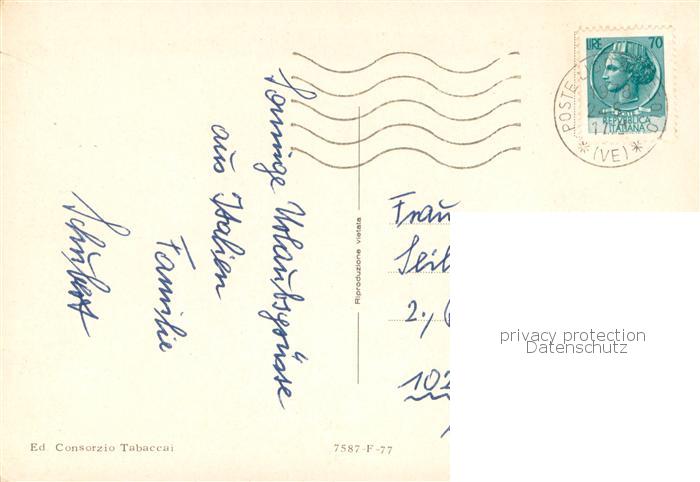 Sonnige Urlaubsgrüsse
aus Italien
Familie
Schubert
Riproduzione vietata
LIRE 70
REPVBBLICA
ITALIANA
POSTE
(VE)
Frau
2.,
102
privacy protection
Datenschutz
Ed. Consorzio Tabaccai
7587-F-77